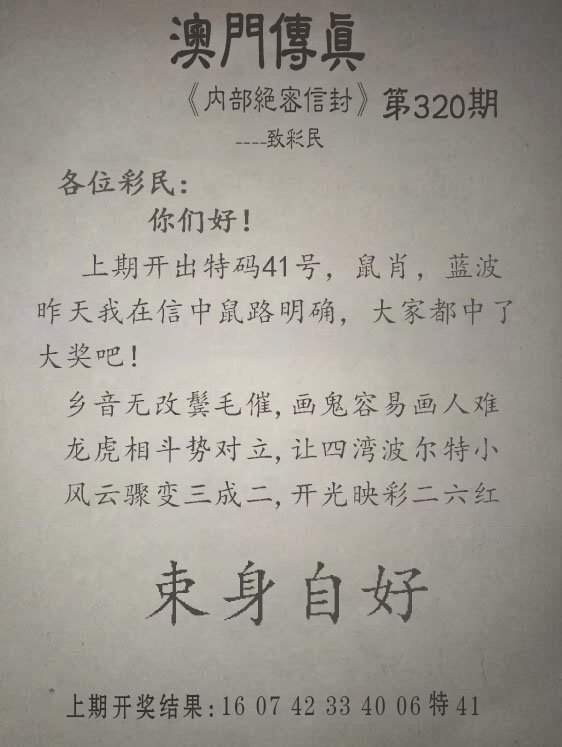 澳門傳眞
《内部絕密信封》第320期
----致彩民
各位彩民：
你们好！
上期开出特码41号，鼠肖，蓝波
昨天我在信中鼠路明确，大家都中了
大奖吧！
乡音无改鬓毛催,画鬼容易画人难
龙虎相斗势对立,让四湾波尔特小
风云骤变三成二,开光映彩二六红
束身自好
上期开奖结果:16 07 42 33 40 06 特 41